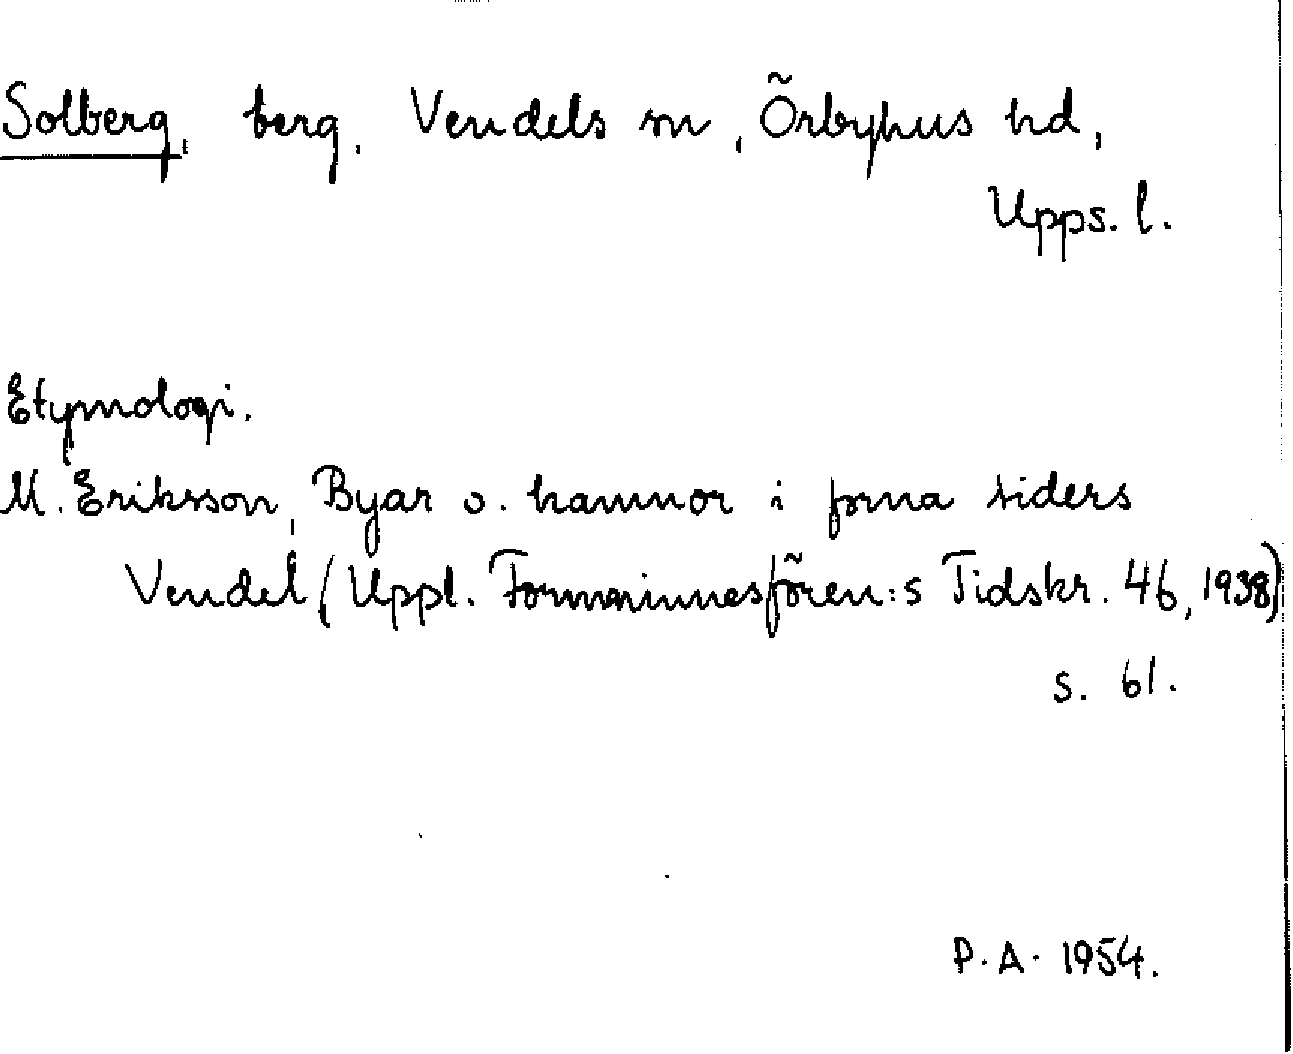 Solberg, berg, Vendels sn, Örbyhus hd,
Upps. l.
Etymologi.
M. Eriksson, Byar o. hamnor i forna tiders
Vendel (Uppl. Fornminnesfören:s Tidskr. 46, 1938)
s. 61.
P. A. 1954.